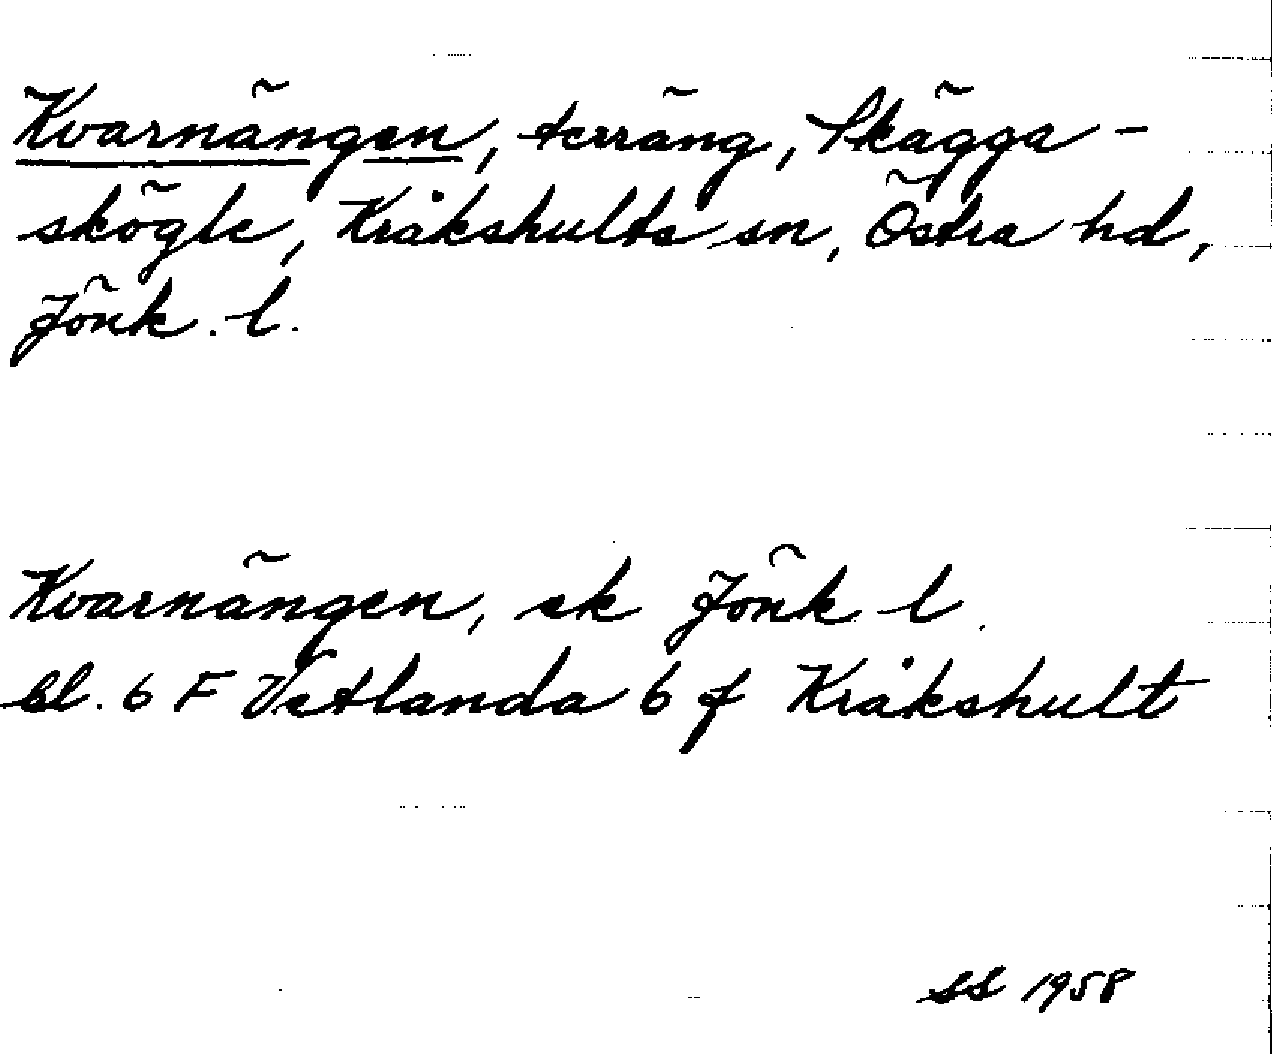 Kvarnängen, terräng, Skägga-
skögle, Kråkshults sn, Östra hd,
Jönk. l.
Kvarnängen, ek Jönk l.
bl. 6 F Vetlanda 6 f Kråkshult
SS 1958